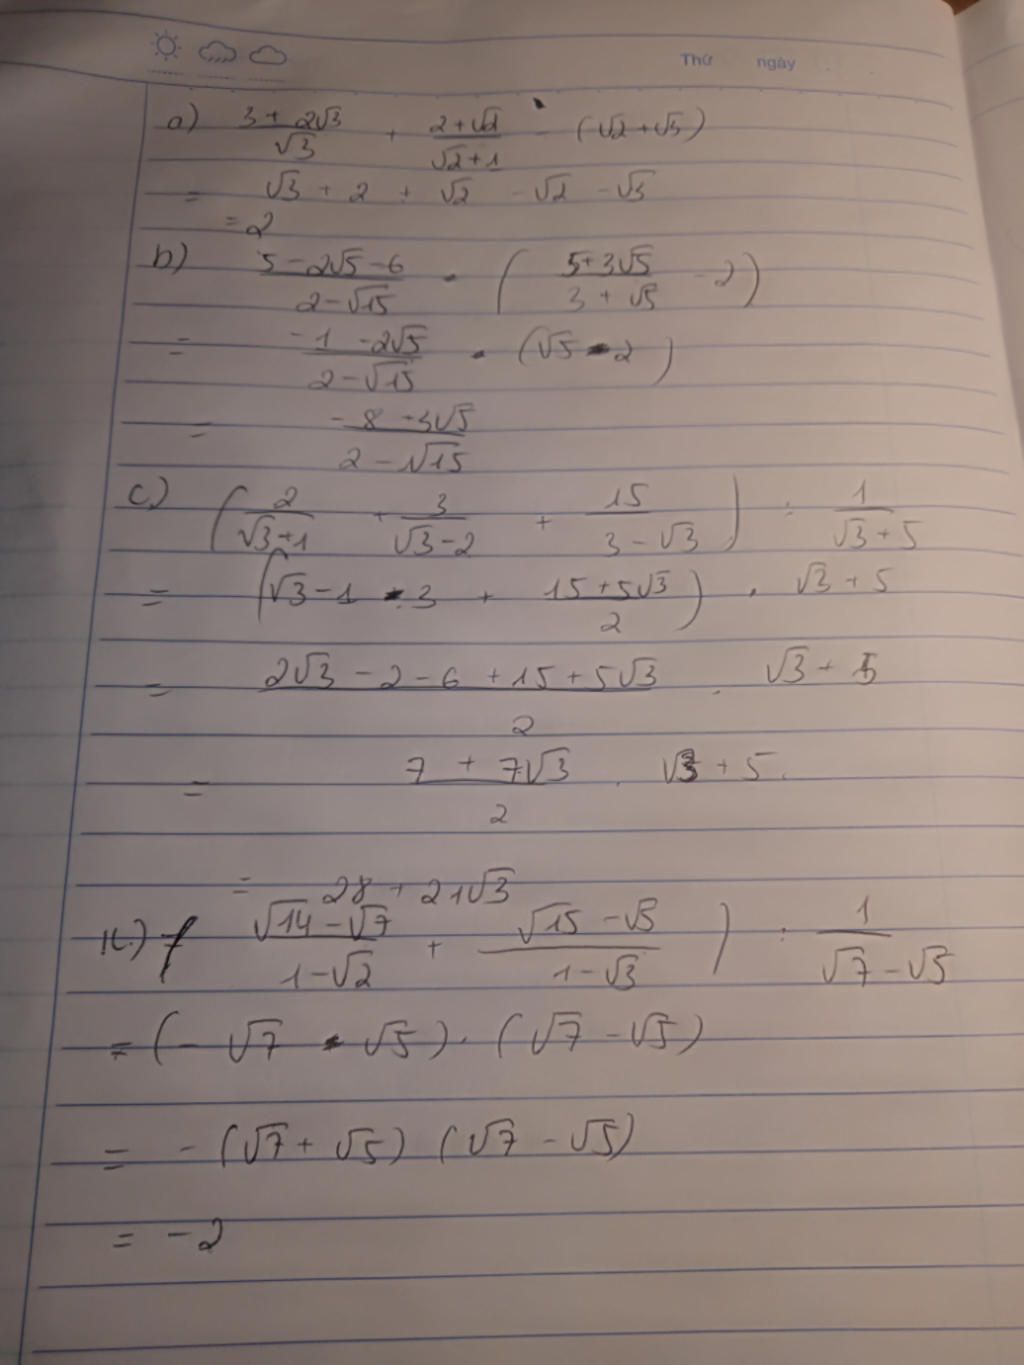 Thứ ngày
a) (3 + 2√3)/√3 + (2 + √2)/(√2 + 1) - (√2 + √3)
= √3 + 2 + √2 - √2 - √3
= 2
b) (5 - 2√5 - 6)/(2 - √15) · ((5 + 3√5)/(3 + √5) - 2)
= (-1 - 2√5)/(2 - √15) · (√5 - 2)
= (-8 + 3√5)/(2 - √15)
c) (2/(√3 + 1) + 3/(√3 - 2) + 15/(3 - √3)) : 1/(√3 + 5)
= (√3 - 1 - 3 + (15 + 5√3)/2) . √3 + 5
= (2√3 - 2 - 6 + 15 + 5√3)/2 . √3 + 5
= (7 + 7√3)/2 . √3 + 5.
= 28 + 21√3
k.) ((√14 - √7)/(1 - √2) + (√15 - √5)/(1 - √3)) : 1/(√7 - √5)
= (- √7 - √5) . (√7 - √5)
= - (√7 + √5) (√7 - √5)
= - 2